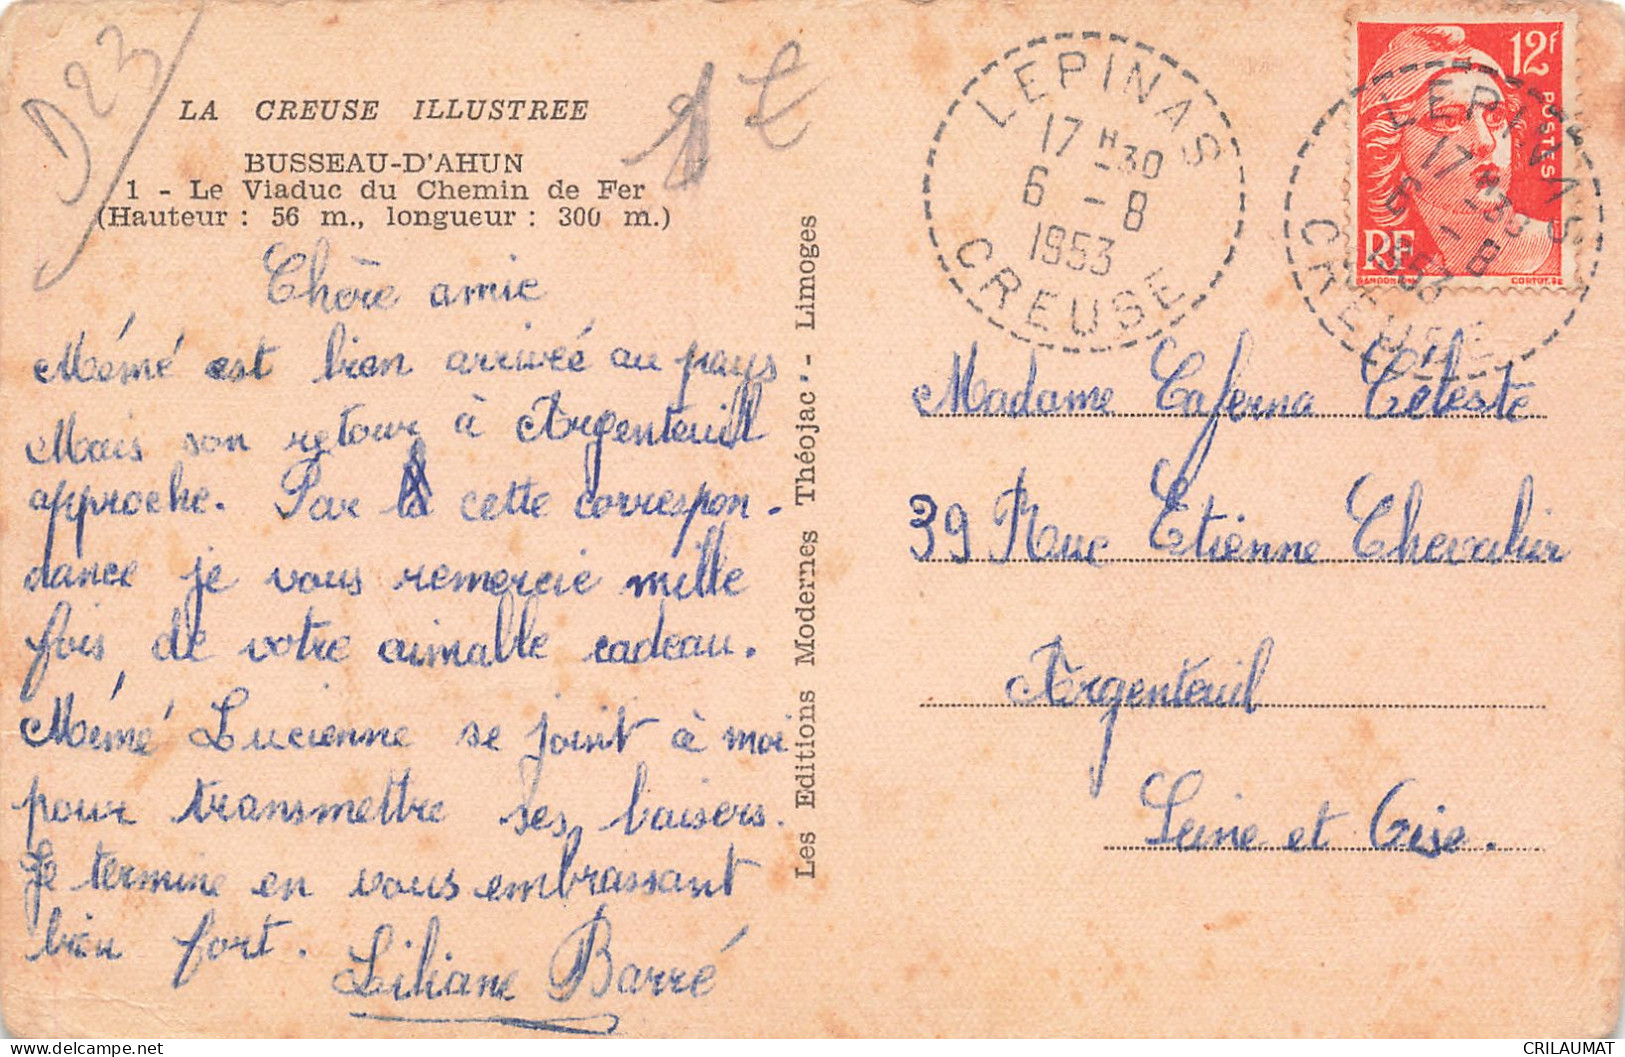 D23
LA CREUSE ILLUSTREE
BUSSEAU-D'AHUN
1 - Le Viaduc du Chemin de Fer
(Hauteur : 56 m., longueur : 300 m.)
Chère amie
Mémé est bien arrivée au pays
Mais son retour à Argenteuil
approche. Par cette correspon-
dance je vous remercie mille
fois de votre aimable cadeau.
Mémé Lucienne se joint à moi
pour transmettre ses baisers.
Je termine en vous embrassant
bien fort.
Liliane Barré
Les Editions Modernes Théojac - Limoges
LEPINAS
17 H 30
6 - 8
1953
CREUSE
12f
POSTES
RF
GANDON
CORTOT. SC
LEPINAS
17 H 30
6 - 8
1953
CREUSE
Madame Caferna Céleste
39 Rue Etienne Chevalier
Argenteuil
Seine et Oise.
CRILAUMAT